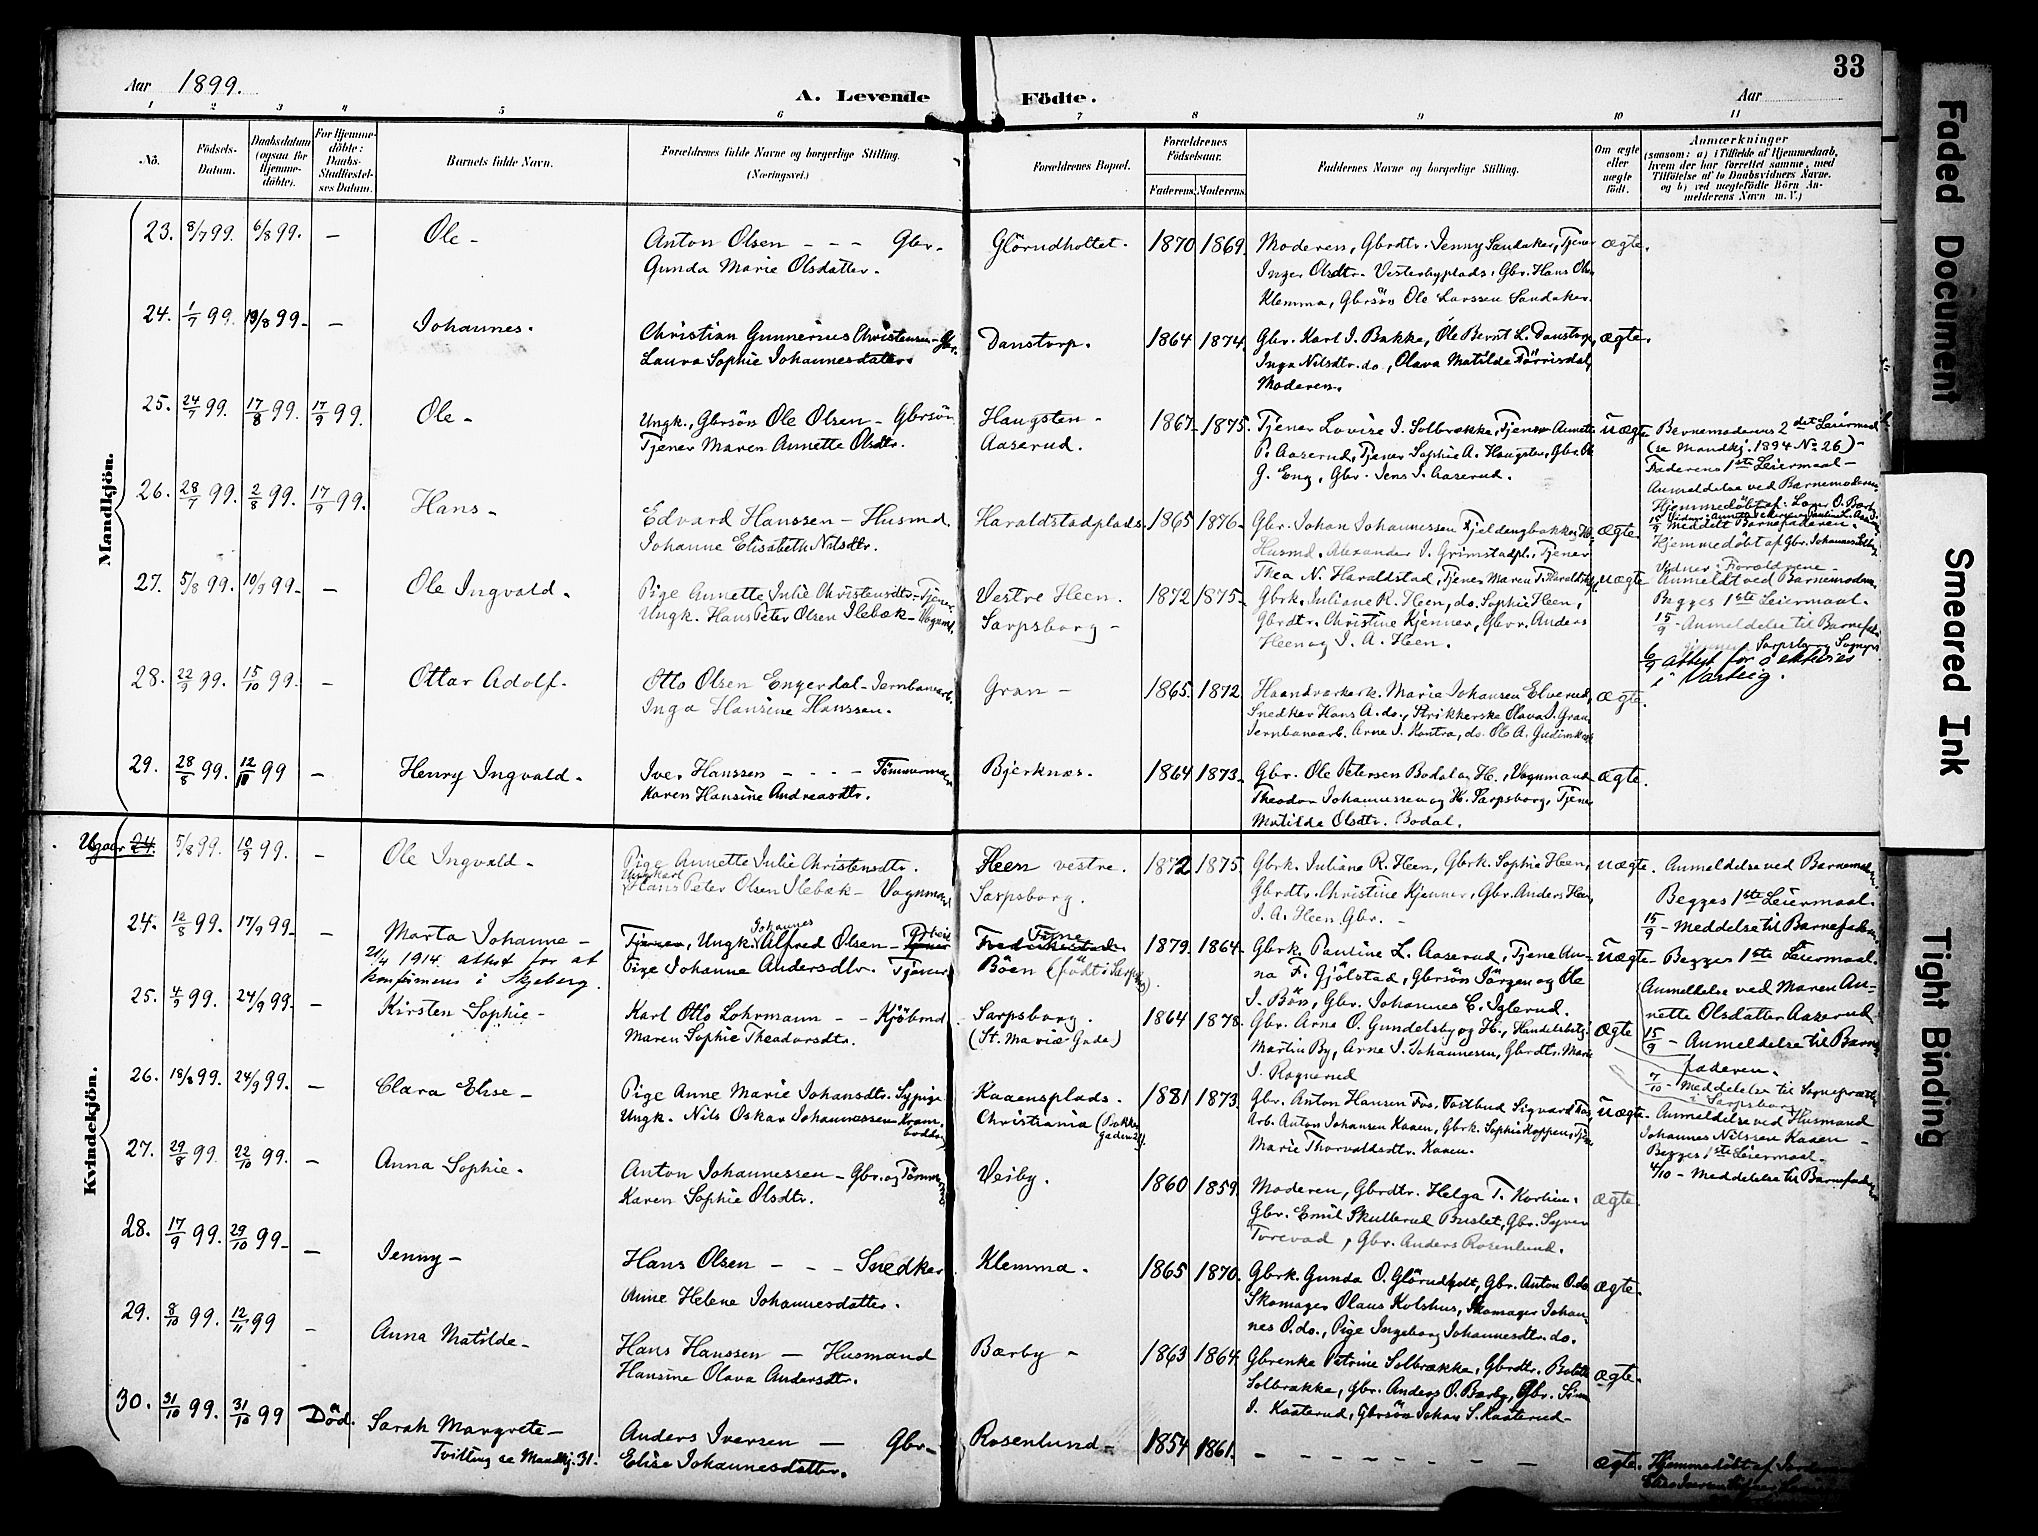 Aar 1899.
A. Levende Födte.
Aar
33
1 2 3 4 5 6 7 8 9 10 11
No.
Födsels-Datum.
Daabsdatum (ogsaa for Hjemme-döbte).
For Hjemme-döbte: Daabs-Stadfæstel-ses Datum.
Barnets fulde Navn.
Forældrenes fulde Navne og borgerlige Stilling. (Næringsvei.)
Forældrenes Bopæl.
Forældrenes Födselsaar.
Faderens. Moderens.
Faddernes Navne og borgerlige Stilling.
Om ægte eller uægte födt.
Anmærkninger
(saasom: a) i Tilfælde af Hjemmedaab,
hvem der har forrettet samme, med
Tilföielse af to Daabsvidners Navne,
og b) ved uægtefödte Börn An-
melderens Navn m. V.)
Mandkjön.
23. 8/7 99. 6/8 99. – Ole – Anton Olsen – – – Gbr. Glörudholtet. 1870 1869. Moderen, Gbrdtr. Jenny Sandaker, Tjener ægte.
Gunda Marie Olsdatter. Inger Olsdtr. Vesterbyplads, Gbr. Hans Ols.
Klemma, Gbrsön Ole Larssen Sandaker.
24. 1/7 99. 13/8 99. – Johannes. Christian Gunnerius Christensen – Gbr. Danstorp. 1864 1874. Gbr. Karl J. Bakke, Ole Bernt L. Danstorp, ægte.
Laura Sophie Johannesdatter. Inga Nilsdtr. do, Olava Matilde
Moderen.
25. 24/7 99. 17/8 99. 17/9 99. Ole – Ungk., Gbrsön Ole Olsen – Gbrsön Haugsten – 1867 1875. Tjener Lovise J. Solbrække, Tjener Annette uægte Barnemoderens 2det Leiermaal
Tjener Maren Annette Olsdtr. Aaserud. P. Aaserud, Tjener Sophie A. Haugsten, Gbr. (se Mandkj. 1894 No 26) –
J. Eng, Gbr. Jens J. Aaserud. Faderens 1ste Leiermaal –
Anmeldelse ved Barnemoderen
Hjemmedöbt af
15/9 meddelt Barnefaderen.
26. 28/7 99. 2/8 99. 17/9 99. Hans – Edvard Hanssen – Husmd. Haraldstadplads 1865 1876. Gbr. Johan Johannessen ægte.
Johanne Elisabeth Nilsdtr. Husmd. Alexander J. Grimstadpl., Tjener
Thea N. Haraldstad, Tjener Maren
Hjemmedöbt af Gbr. Johannes
Vidner: Forældrene –
27. 5/8 99. 10/9 99. – Ole Ingvald. Pige Annette Julie Christensdtr. – Tjener Vestre Heen. 1872 1875. Gbrk. Juliane R. Heen, do. Sophie Heen, uægte Anmeldt ved Barnemoderen
Ungk. Hans Peter Olsen Ilebæk – Vognmd. Sarpsborg – Gbrdtr. Christine Kjenner, Gbr. Anders Begges 1ste Leiermaal.
Heen og J. A. Heen. 15/9 – Anmeldelse til Barnefad.
Sarpsborg
6/9 attest for
i Varteig.
28. 22/9 99. 15/10 99. – Ottar Adolf. Otto Olsen Engerdal – Jernbanearb. Gran – 1865. 1872 Haandværkerk. Marie Johansen Elverud, ægte.
Inga Hansine Hanssen. Snedker Hans A. do., Strikkerske Olava J. Gran
Jernbanearb. Arne J. Kontra, do. Ole A.
29. 28/8 99. 12/10 99 – Henry Ingvald. Iver Hanssen – – – Tömmermand Bjerknæs. 1864 1873. Gbr. Ole Petersen Bodal og H., Vognmand ægte.
Karen Hansine Andreasdtr. Theodor Johannessen og H. Sarpsborg, Tjener
Matilda Olsdtr. Bodal.
Kvindekjön.
Ugaar 24. 5/8 99. 10/9 99. – Ole Ingvald – Pige Annette Julie Christensdtr. Heen vestre. 1872 1875. Gbrk. Juliane R. Heen, Gbrk. Sophie Heen, uægte. Anmeldelse ved Barnemoderen.
Ungkarl Hans Peter Olsen Ilebæk – Vognmand Sarpsborg. Gbrdtr. Christine Kjenner, Gbr. Anders Heen, Begges 1ste Leiermaal.
J. A. Heen Gbr. – 15/9 – Meddelse til Barnefaderen.
24. 12/8 99. 17/9 99. – Marta Johanne – Tjener, Ungk. Johannes Alfred Olsen – Tjener Fredrikstad 1879. 1864. Gbrk. Pauline L. Aaserud, Tjene An- uægte – Begges 1ste Leiermaal.
21/4 1914 attest for at Pige Johanne Andersdtr. Tjener Böen (födt i Sarpsborg). na F. Gjölstad, Gbrsön Jörgen og Ole Anmeldelse ved Maren An-
konfirmeres i Skjeberg. J. Böen, Gbr. Johannes C. Iglerud. nette Olsdatter Aaserud.
15/9 – Anmeldelse til Barne-
faderen.
25. 4/9 99. 24/9 99. – Kirsten Sophie – Karl Otto Lohrmann – – Kjöbmd. Sarpsborg. 1864 1878. Gbr. Arne O. Gundelsby og H., Handelsbetj. ægte
Maren Sophie Theodorsdtr. (St. Mariæ Gade) Martin By, Arne J. Johannesen, Gbrdtr. Marie
J. Ragnerud
7/10 – Meddelelse til Sognepræsten
i Sarpsborg
26. 18/8 99. 24/9 99. – Clara Elise – Pige Anne Marie Johansdtr. Sypige Kaaensplads. 1881 1873. Gbr. Anton Hansen Fos, Sigvard uægte – Anmeldelse ved Husmand
Ungk. Nils Oskar Johannessen – Christiania Arb. Anton Johansen Kaaen, Gbrk. Sophie Koppen, Johannes Nilssen Kaaen –
Marie Thorvaldsdtr. Kaaen. Begges 1ste Leiermaal.
4/10 – Meddelelse til Barnefaderen
27. 29/8 99. 22/10 99. – Anna Sophie. Anton Johannessen – Gbr. og Tömmermand Veiby. 1860 1859. Moderen, Gbrdtr. Helga T. ægte.
Karen Sophie Olsdtr. Gbr. Emil Skullerud Buslet, Gbr. Syver
Torevad, Gbr. Anders Rosenlund.
28. 17/9 99. 29/10 99. – Jenny – Hans Olsen – – – Snedker Klemma. 1865 1870. Gbrk. Gunda O. Glörudholt, Gbr. Anton O. do. ægte.
Anne Helene Johannesdatter. Skomager Olaus Kolshus, Skomager Johan-
nes O. do., Pige Ingeborg Johannesdtr. do.
29. 8/10 99. 12/11 99 – Anna Matilde – Hans Hanssen – Husmand Bærby – 1863 1864. Gbrenke Petrine Solbrække, Gbrdtr. ægte.
Hansine Olava Andersdtr. Solbrække, Gbr. Anders O. Bærby, Gbr.
J. Kaaterud, Gbrsön Johan S. Kaaterud –
30. 31/10 99. 31/10 99 Död. Sarah Margrete – Anders Iversen – Gbr – Rosenlund – 1854 1861. – – – – – – – ægte. Hjemmedöbt af
Tvilling se Mandkj. 31. Elise Johannesdatter.
Faded Document
Smeared Ink
Tight Binding